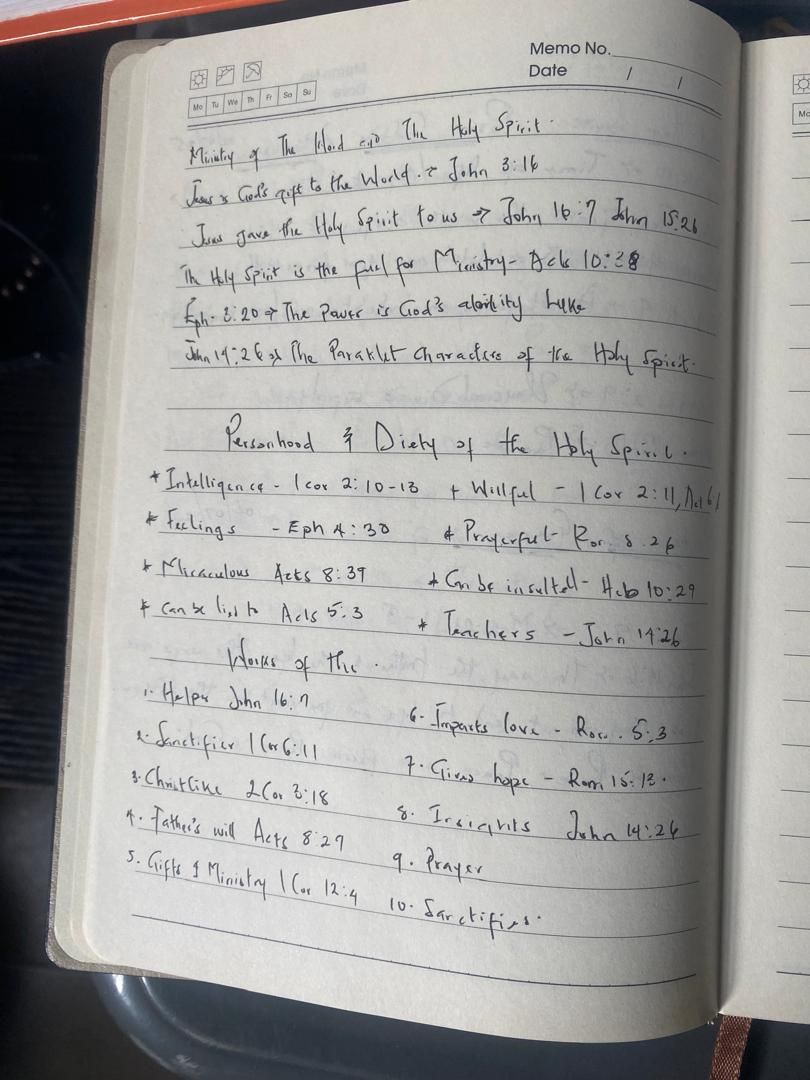 Memo No.
Date / /
Mo Tu We Th Fr Sa Su
Ministry of The Word and The Holy Spirit.
Jesus is God's gift to the World. → John 3:16
Jesus gave the Holy Spirit to us → John 16:7 John 15:26
The Holy Spirit is the fuel for Ministry - Acts 10:38
Eph. 3:20 → The Power is God's ability Luke
John 14:26 → The Paraklet Characters of the Holy Spirit.
Personhood & Diety of the Holy Spirit.
* Intelligence - 1 Cor 2:10-13 + Willful - 1 Cor 2:11, Act 6
* Feelings - Eph 4:30 * Prayerful - Rom. 8.26
* Miraculous Acts 8:39 * Can be insulted - Heb 10:29
* Can be lied to Acts 5:3 * Teachers - John 14:26
Works of the.
1. Helper John 16:7
2. Sanctifier 1 Cor 6:11
3. Christlike 2 Cor 3:18
4. Father's will Acts 8:29
5. Gifts & Ministry 1 Cor 12:4
6. Imparts love - Rom. 5:3
7. Gives hope - Rom 15:13.
8. Insights John 14:26
9. Prayer
10. Sanctifies.
Mo